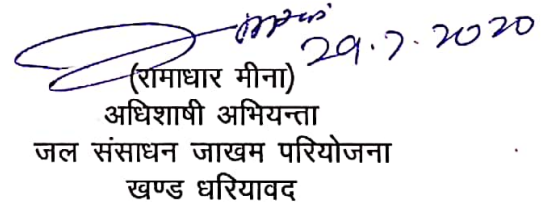 29.7.2020
(रामाधार मीना)
अधिशाषी अभियन्ता
जल संसाधन जाखम परियोजना
खण्ड धरियावद